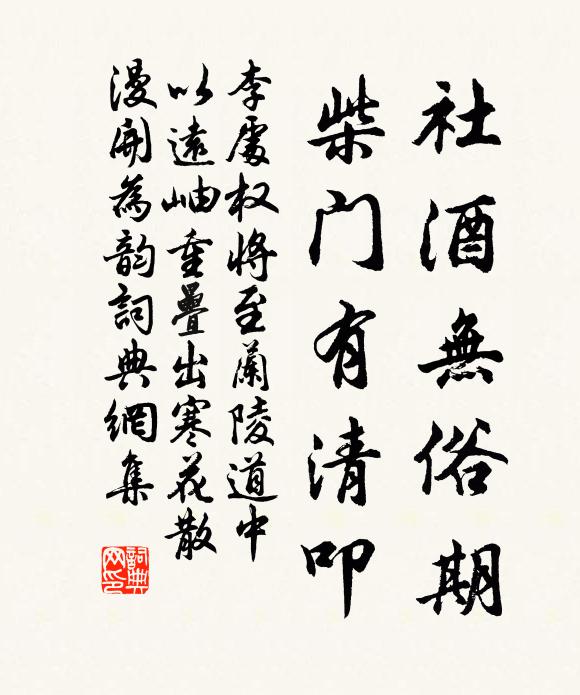 社酒無俗期
柴门有清叩
李處权將至蘭陵道中
以遠岫重疊出寒花散
漫開為韵詞典網集
詞典网印